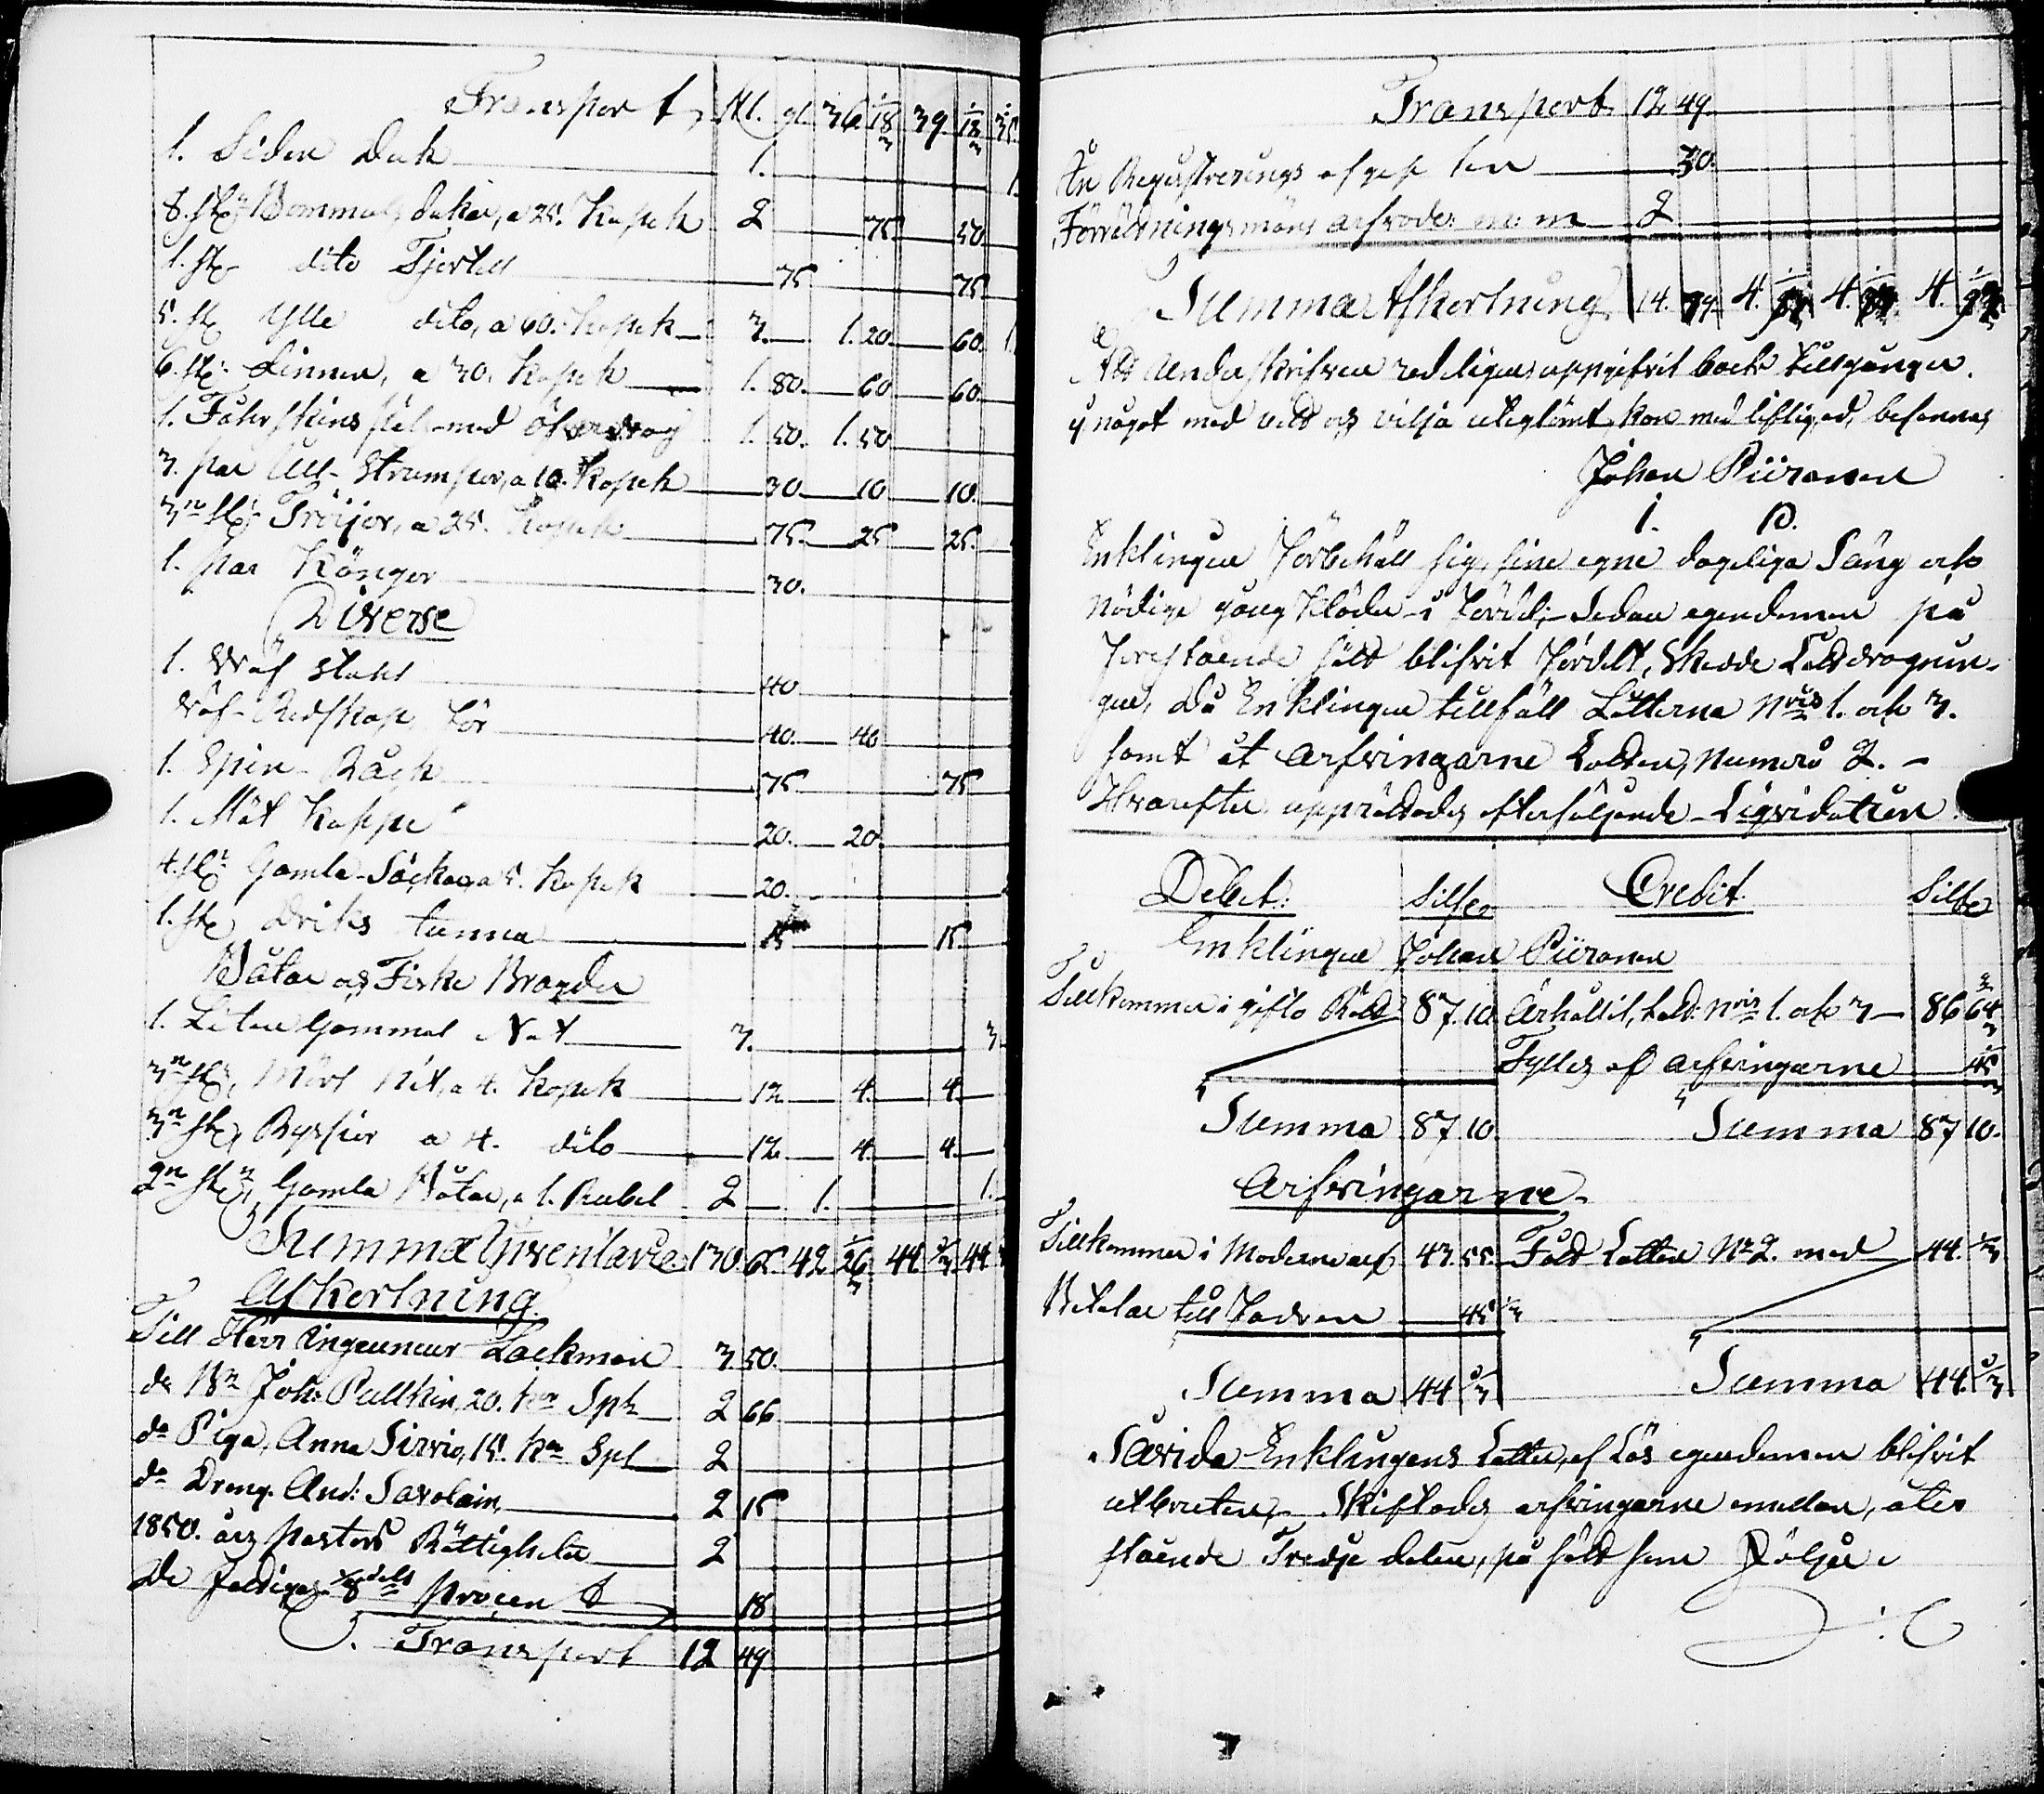 Transport 111. 91. 36 1/18 39. 1/12 35.
1. Siden Duk 1. 1.
8. st. Bommuls dukar, a 25. Kopek 2 75 50.
1. st. dito Tjortell 75 75
5. st. Ylle dito, a 60. Kopek 3. 1. 20. 60. 1.
6. st. Linnen, a 30. Kopek 1. 80. 60 60.
1. Fåhrskins päls med öfverdrag 1. 50. 1. 50
3. par Ull-Strumpor, a 10. Kopek 30. 10 10.
3ne st. Tröijor, a 25. Kopek 75. 25 25.
1. par Känger 30.
Diverse
1. Wäf stohl 40
Wäf-Redskap för 40. 40
1. Spin-Råck 75. 75
1. Mät Kappe 20. 20.
4. st. Gamla-Säckar, a 5. Kopek 20.
1. st. Driks tunna 15 15.
Båtar och Fiske Bragder
1. Liten Gammal Not 3. 3.
3ne st. Mört Nät, a 4. Kopek 12 4. 4.
3ne st. Ryssior a 4. dito 12. 4. 4.
2ne st. Gamla Båtar, a 1. Rubel 2 1. 1.
Summa Inventarie 130. 65. 42 26 44. 44
Afkortning.
Till Herr Ingeuneur Lackman 3. 50.
do Bn Joh: Pulkin, 20. Spl 2 66
do Piga, Anna Sirvio, 15. Spl 2
do Dreng. And: Savolain, 2 15
1850. års Pastors Rättigheter 2
De fattigas 1/8 dels procent 18
Transport 12 49
Transport 12 49.
An Registrerings afgiften 30.
Förrättningsmäns arfvode m: m 2
Summa Afkortning 14. 79 4. 4. 4.
Att undertecknad redeligen uppgifvit boets tillgångar.
ej något med vett och vilja uteglömt, kan med liflig ed, besannas
Johan Piironen
Enklingen förbehåll sig, sine egne dageliga Säng och
nödige gång kläder i förväg; Sedan egendomen på
förestående sätt blifvit fördelt, skedde Lottdragnin-
gen, då Enklingen tillföll Lotterna Nris 1. och 3.
samt åt arfvingarne Lotten, Numero 2. -
Hvarefter upprättades efterföljande Liqvidation
Debet: Silfver Credit. Silfver
Enklingen Johan Piironen
Tillkommer i gifto Rätt 87. 10. Erhållit, Lott: Nris 1. och 3 86 64
Fylles af arfvingarne 45
Summa 87 10. Summa 87 10.
Arfvingarne.
Tillkommer i Moderne arf 43. 55. Fått Lotten No 2. med 44. 1/3
Betalar till Fadren 45 1/3
Summa 44 1/3 Summa 44. 1/3
Såvida Enklingens Lotter, af Lös egendomen blifvit
utbruten, Skiftades arfvingarne emellan, åter
stående Tredje delen, på sätt som följer